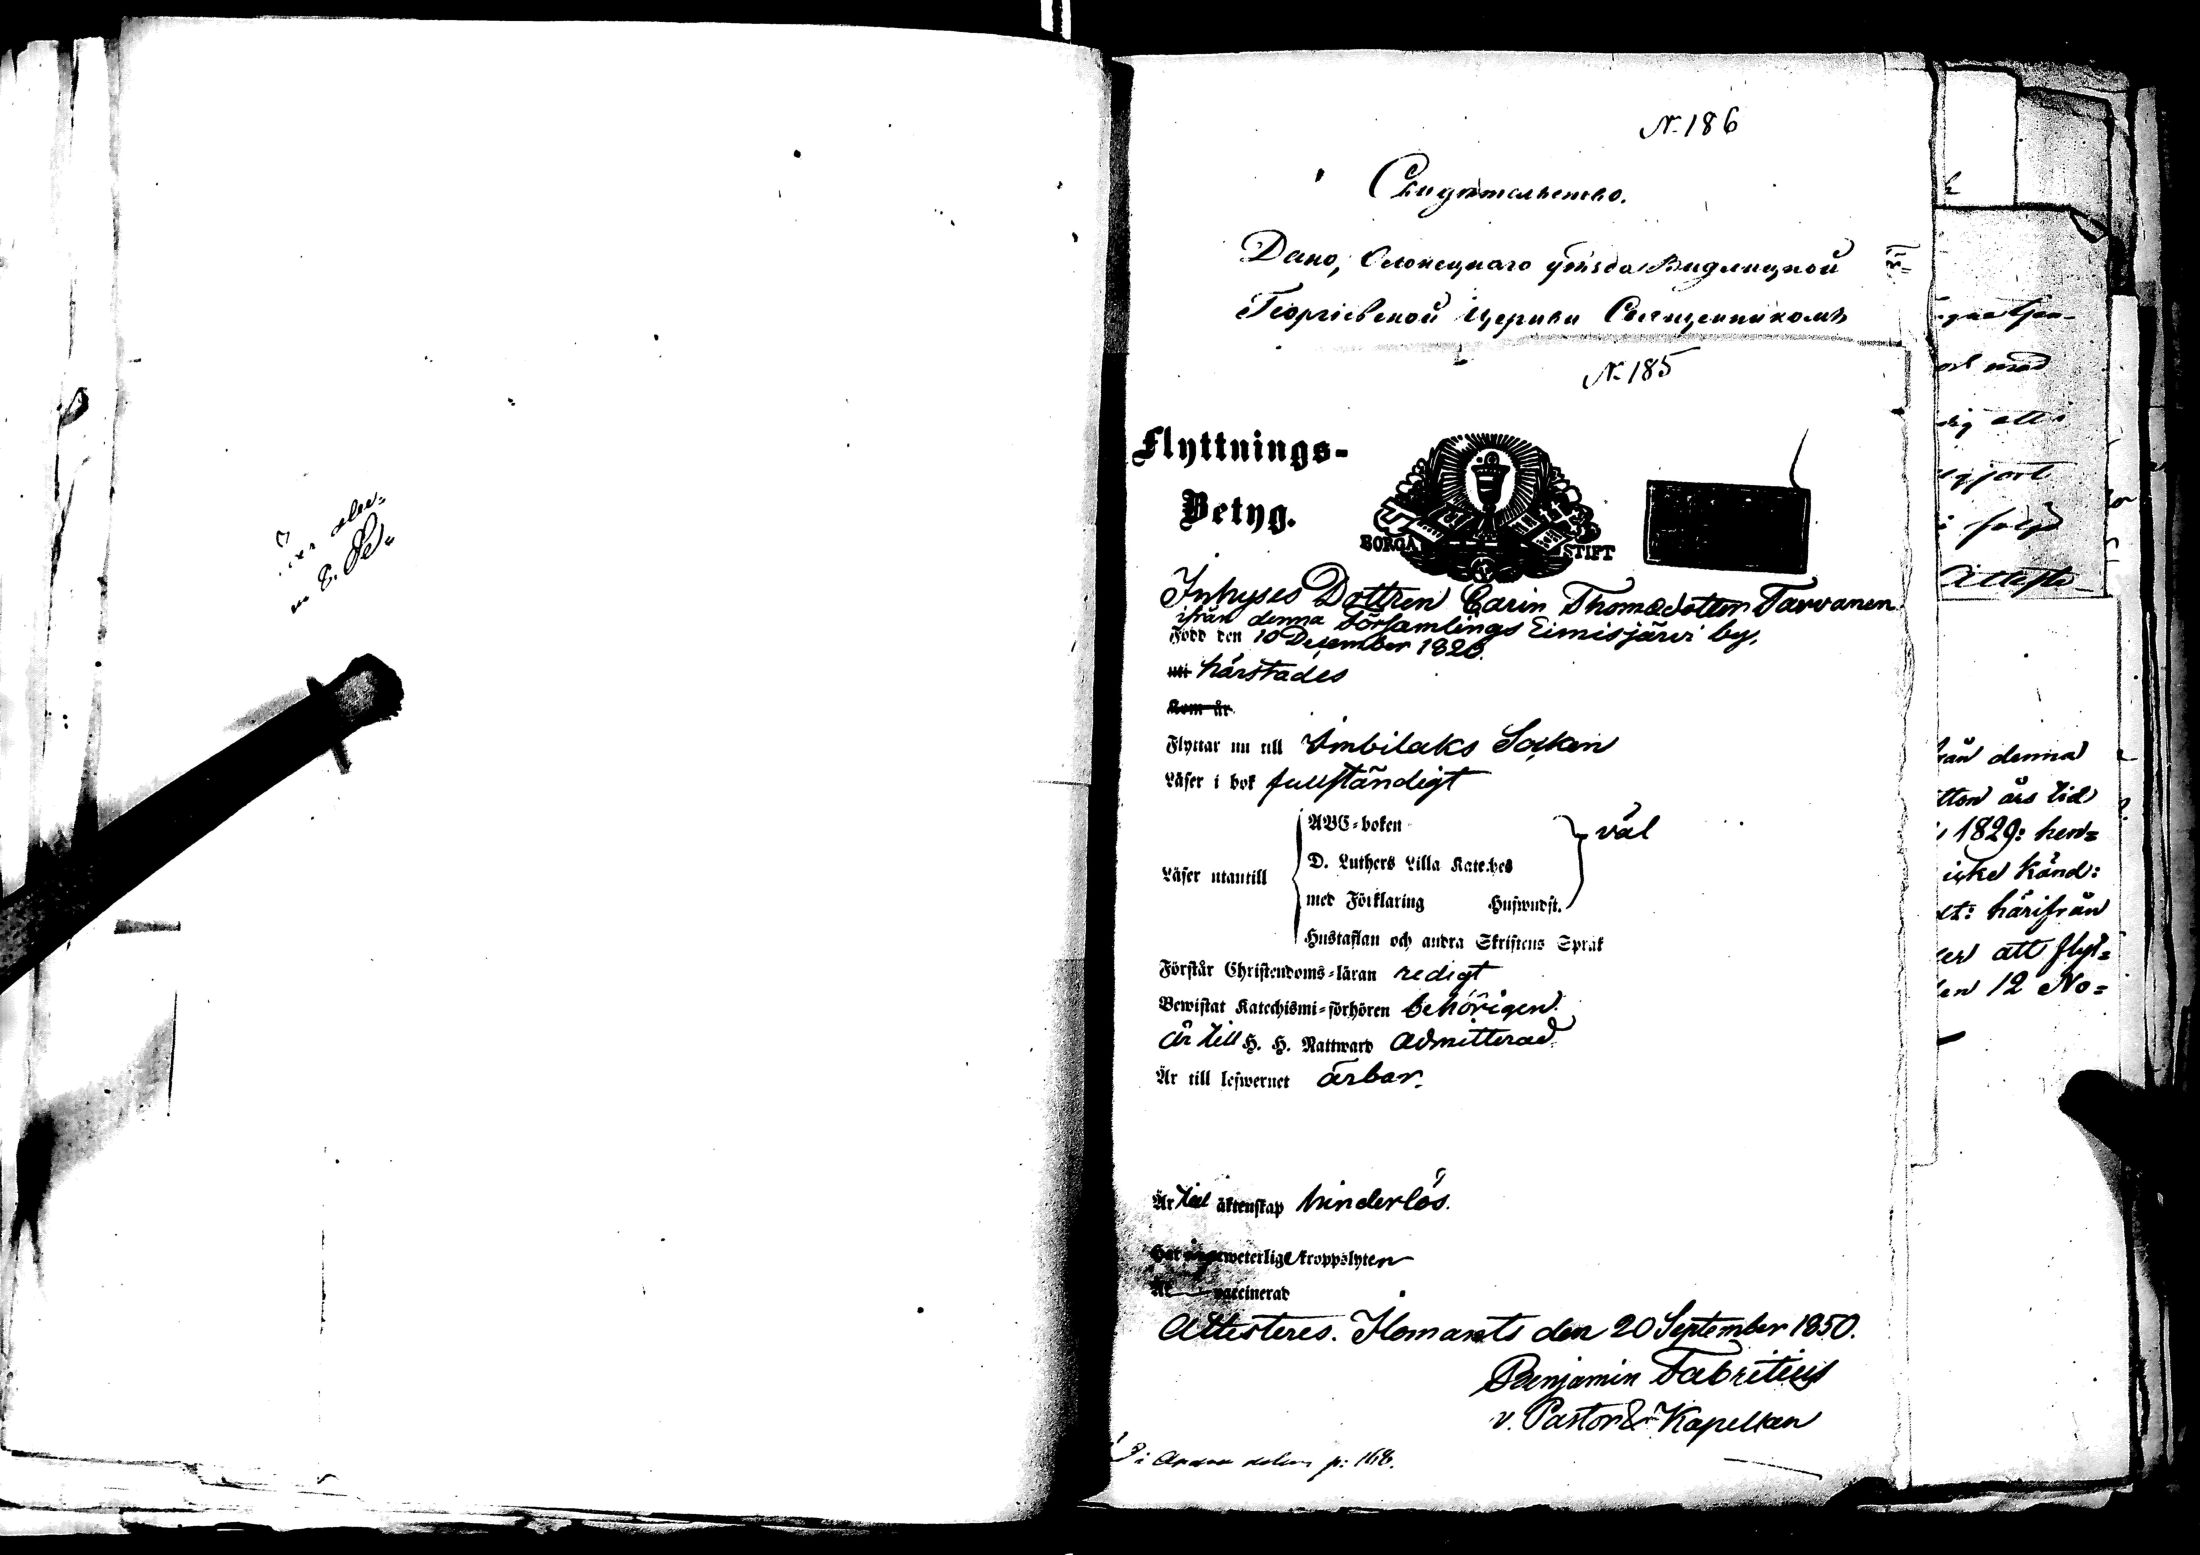 N. 186
Свидѣтельство.
Дано, Олонецкаго уѣзда Видлицкой
Георгіевской Церкви Священникомъ
N. 185
Flyttnings-
Betyg.
BORGÅ STIFT
Inhyses Dottren Carin Thomædotter Tarvanen
ifrån denna Församlings Eimisjärvi by.
Född den 10 December 1826.
uti härstädes
Kom år
Flyttar nu till Imbilaks Socken
Läser i bok fullständigt
ABC-boken
väl
D. Luthers Lilla Kateches
Läser utantill
med Förklaring Huswudst.
Hustaflan och andra Skriftens Språk
Förstår Christendoms-läran redigt
Bewistat Katechismi-förhören behörigen.
är till H. H. Nattward admitterad
Är till lefwernet ärbar.
Är till äktenskap hinderlös.
weterlige kroppslyten
Är vaccinerad
Attesteres. Ilomants den 20 September 1850.
Benjamin Fabritius
v. Pastor & Kapellan
i Andra delen p: 168.
ort med
dig att
i följd
Atteste
från denna
tton års tid
1829: hen=
icke känd:
härifrån
att flyt=
en 12 No=